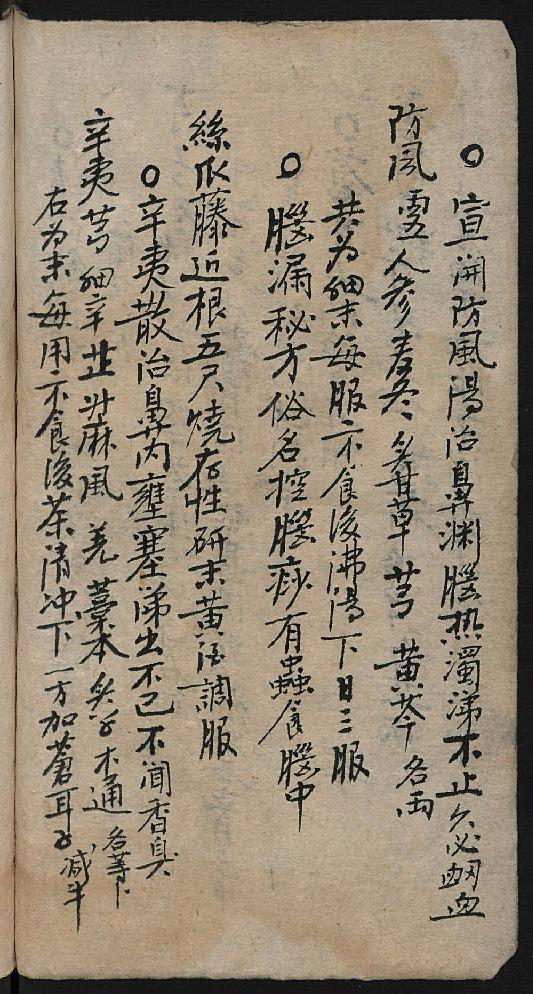 ○宣開防風湯治鼻淵腦热濁涕不止久必衂血
防風 人參 麦冬 炙甘草 芎 黄芩 各兩
共为細末每服二不食後沸湯下日三服
○腦漏秘方俗名控腦痧有蟲食腦中
絲瓜藤近根五尺燒存性研末黄酒調服
○辛夷散治鼻内壅塞涕出不已不聞香臭
辛夷 芎 細辛 芷 升麻 風 羌 藁本 炙 木通 各等
右为末每用二不食後茶清冲下一方加蒼耳子減半